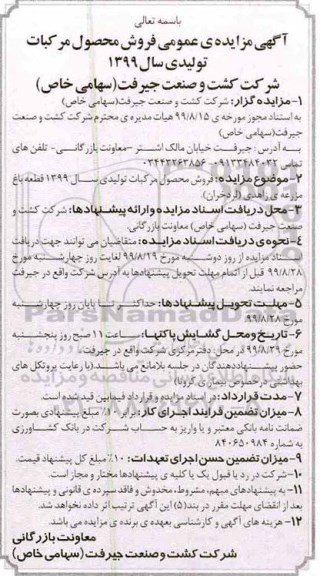 باسمه تعالی
آگهی مزایده ی عمومی فروش محصول مرکبات
تولیدی سال ۱۳۹۹
شرکت کشت و صنعت جیرفت (سهامی خاص)
۱- مزایده گزار: شرکت کشت و صنعت جیرفت (سهامی خاص)
به استناد مجوز مورخه ی ۹۹/۸/۱۵ هیات مدیره ی محترم شرکت کشت و صنعت
جیرفت (سهامی خاص)
به آدرس: جیرفت خیابان مالک اشتر - معاونت بازرگانی - تلفن های
تماس ۰۹۱۳۳۴۸۴۰۳۲ - ۰۳۴۴۳۲۶۳۸۵۶
۲- موضوع مزایده: فروش محصول مرکبات تولیدی سال ۱۳۹۹ قطعه باغ
مزرعه ی زاهدی (اردحران).
۳- محل دریافت اسناد مزایده و ارائه پیشنهادها: شرکت کشت و
صنعت جیرفت (سهامی خاص) معاونت بازرگانی.
۴- نحوه ی دریافت اسناد مزایده: متقاضیان می توانند جهت دریافت
اسناد مزایده از روز دوشنبه مورخ ۹۹/۸/۱۹ لغایت روز چهارشنبه مورخ
۹۹/۸/۲۸ قبل از اتمام مهلت تحویل پیشنهادها به آدرس شرکت واقع در جیرفت
مراجعه نمایند.
۵- مهلت تحویل پیشنهادها: حداکثر تا پایان روز چهارشنبه
مورخ ۹۹/۸/۲۸
۶- تاریخ و محل گشایش پاکتها: ساعت ۱۱ صبح روز پنجشنبه
مورخ ۹۹/۸/۲۹ در محل: دفتر مرکزی شرکت واقع در جیرفت،
حضور پیشنهاددهندگان در جلسه بلامانع می باشد (با رعایت پروتکل های
بهداشتی در خصوص بیماری کرونا)
۷- مدت قرارداد: در اسناد مزایده و قرارداد فیمابین قید شده است.
۸- میزان تضمین فرایند اجرای کار: برابر ۱۰٪ مبلغ پیشنهادی بصورت
ضمانت نامه بانکی معتبر و یا واریز به حساب شرکت در بانک کشاورزی
به شماره ۸۴۰۶۵۰۹۸۴
۹- میزان تضمین حسن اجرای تعهدات: ۱۰٪ مبلغ کل پیشنهاد قیمت.
۱۰- شرکت در رد یا قبول یک یا کلیه ی پیشنهادها مختار و مجاز است.
۱۱- به پیشنهادهای مبهم، مشروط، مخدوش و فاقد سپرده ی قانونی و پیشنهادها
بعد از انقضای مهلت مقرر در بند (۵) این آگهی ترتیب اثر داده نخواهد شد.
۱۲- هزینه های آگهی و کارشناسی بعهده ی برنده ی مزایده می باشد.
معاونت بازرگانی
شرکت کشت و صنعت جیرفت (سهامی خاص)